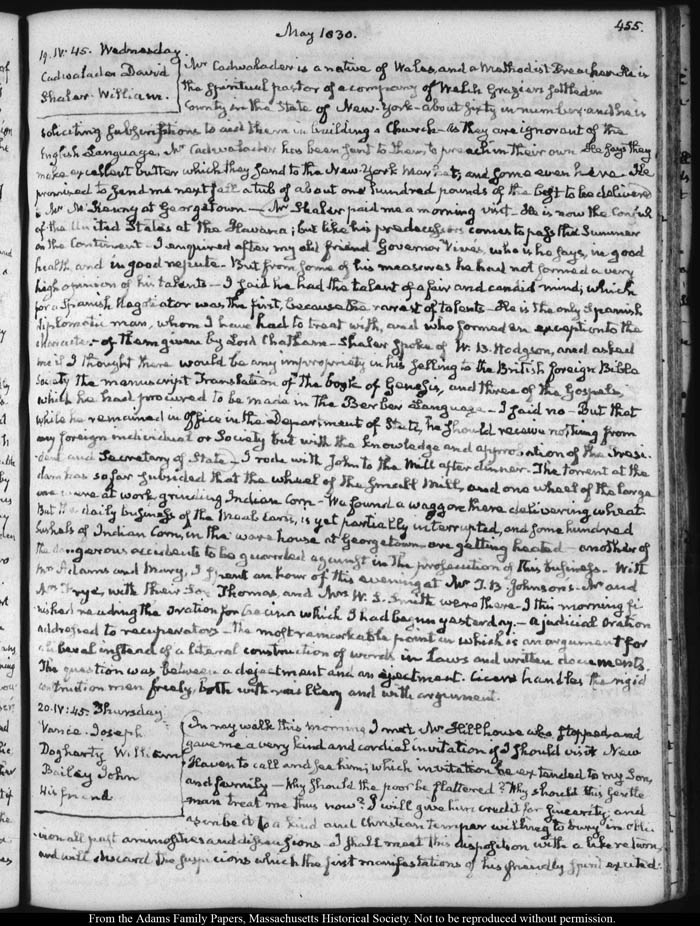 May 1830.
455.
19. IV: 45. Wednesday.
Cadwalader David
Shaler. William.
Mr Cadwalader is a native of Wales, and a Methodist Preacher. He is
the Spiritual pastor of a company of Welsh Graziers settled in
County in the State of New-York—about sixty in number. and he is
soliciting subscriptions to aid them in building a Church—As they are ignorant of the
English Language, Mr Cadwalader has been sent to them, to preach in their own. He says they
make excellent butter which they send to the New-York Market; and some even here. He
promised to send me next fall a tub of about one hundred pounds of the best to be delivered
to Mr McKenny at Georgetown—Mr Shaler paid me a morning visit. He is now the Consul
of the United States at the Havana; but like his predecessors comes to pass the Summer
on the Continent—I enquired after my old friend Governor Vives, who is he says, in good
health, and in good repute. But from some of his measures he had not formed a very
high opinion of his talents—I said he had the talent of a fair and candid mind; which
for a Spanish Negotiator was the first, because the rarest of talents—He is the only Spanish
diplomatic man, whom I have had to treat with, and who formed an exception to the
character of them given by Lord Chatham—Shaler spoke of W. B. Hodgson, and asked
me if I thought there would be any impropriety in his selling to the British foreign Bible
Society the manuscript Translation of the book of Genesis, and three of the Gospels,
which he had procured to be made in the Berber Language—I said no—But that
while he remained in Office in the Department of State, he should receive nothing from
any foreign individual or Society but with the knowledge and approbation of the Presi-
dent and Secretary of State—I rode with John to the Mill after dinner. The torrent at the
dam has so far subsided that the wheel of the small Mill, and one wheel of the large
one were at work grinding Indian Corn—We found a waggon there delivering wheat
But the daily business of the Meals Carts, is yet partially interrupted, and some hundred
bushels of Indian Corn, in the ware house at Georgetown are getting heated—another of
the dangerous accidents to be guarded against in the prosecution of this business. With
Mrs Adams and Mary, I spent an hour of this evening at Mr T. B. Johnson's. Mr and
Mrs Frye, with their Son Thomas, and Mrs W. S. Smith were there. I this morning fi-
nished reading the Oration for Cæcina which I had begun yesterday.—a judicial Oration
addressed to recuperators—The most remarkable point in which is an argument for
a liberal instead of a literal construction of words in Laws and written documents.
The question was between a dejectment and an ejectment. Cicero handles the rigid
construction men freely, both with raillery and with argument.
20. IV: 45. Thursday
Vance Joseph
Dogharty William
Bailey John
His friend
In my walk this morning I met Mr Hillhouse who stopped and
gave me a very kind and cordial invitation if I should visit New
Haven to call and see him; which invitation he extended to my Son,
and family—Why should the poor be flattered? Why should this gentle
man treat me thus now? I will give him credit for sincerity, and
ascribe it to a kind and Christian temper willing to bury in obli-
vion all past animosities and dissensions. I shall meet this disposition with a like return,
and will discard the suspicions which the first manifestations of his friendly spirit excited.
From the Adams Family Papers, Massachusetts Historical Society. Not to be reproduced without permission.